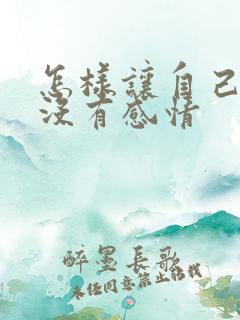 怎樣讓自己
沒有感情
醉墨長歌
未任同意禁止轉載